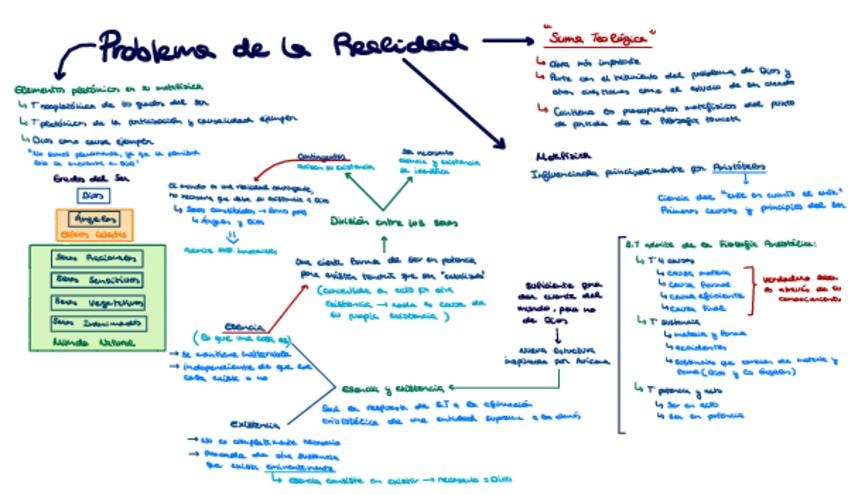 Problema de la Realidad
"Suma Teológica"
↳ Obra más importante
↳ Parte con el tratamiento del problema de Dios y
otras cuestiones como el estudio de
↳ Contiene presupuestos metafísicos del punto
de partida de la filosofía tomista
Elementos platónicos en su metafísica
↳ Tª neoplatónica de los grados del ser
↳ Tª platónicas de la participación y causalidad ejemplar
↳ Dios como causa ejemplar
Grados del Ser
Dios
Ángeles
Seres Racionales
Seres Sensitivos
Seres Vegetativos
Seres Inanimados
Mundo Natural
Contingentes
Reciben su existencia
Ser necesario
esencia y existencia
se identifica
El mundo es una realidad contingente,
no necesaria que debe su existencia a Dios
↳ Ángeles y Dios
División entre los seres
Que cierta forma de ser en potencia
para existir tendría que ser
(convertida en acto por otra
existencia → nada es causa de
su propia existencia)
Metafísica
Influenciada principalmente por Aristóteles
Ciencia del "ente en cuanto al ente"
Primeras causas y principios del ser
S.T admite de la Filosofía Aristotélica:
↳ Tª 4 causas
↳ causa material
↳ causa formal
↳ causa eficiente
↳ causa final
verdadero saber
es a través de su
conocimiento
↳ Tª sustancia
↳ materia y forma
↳ accidentes
↳ sustancias que carecen de materia y
forma (Dios y los Ángeles)
↳ Tª potencia y acto
↳ Ser en acto
↳ Ser en potencia
suficiente para
dar cuenta del
mundo, pero no
de Dios
Nueva estructura
inspirada por Avicena
Esencia
(Lo que una cosa es)
→ Se mantiene inalterable
→ independiente de que esa
cosa existe o no
Esencia y existencia
Existencia
→ No es completamente necesaria
→ Procede de otra sustancia
que exista eminentemente
↳ esencia consiste en existir → necesario = Dios